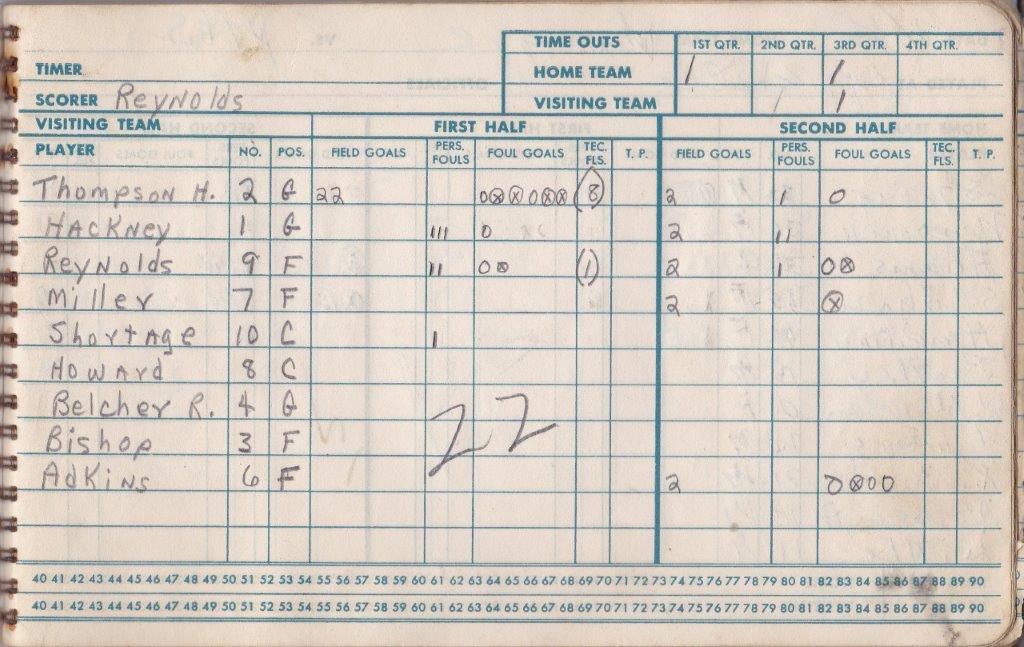 TIME OUTS 1ST QTR. 2ND QTR. 3RD QTR. 4TH QTR.
TIMER HOME TEAM / /
SCORER Reynolds VISITING TEAM / /
VISITING TEAM FIRST HALF SECOND HALF
PLAYER NO. POS. FIELD GOALS PERS. FOULS FOUL GOALS TEC. FLS. T. P. FIELD GOALS PERS. FOULS FOUL GOALS TEC. FLS. T. P.
Thompson H. 2 G 22 O⊗⊗O⊗⊗ (8) 2 I O
Hackney 1 G III O 2 II
Reynolds 9 F II O⊗ (1) 2 I O⊗
Miller 7 F 2 ⊗
Shortage 10 C I
Howard 8 C
Belcher R. 4 G
Bishop 3 F
22
Adkins 6 F 2 O⊗OO
40 41 42 43 44 45 46 47 48 49 50 51 52 53 54 55 56 57 58 59 60 61 62 63 64 65 66 67 68 69 70 71 72 73 74 75 76 77 78 79 80 81 82 83 84 85 86 87 88 89 90
40 41 42 43 44 45 46 47 48 49 50 51 52 53 54 55 56 57 58 59 60 61 62 63 64 65 66 67 68 69 70 71 72 73 74 75 76 77 78 79 80 81 82 83 84 85 86 87 88 89 90